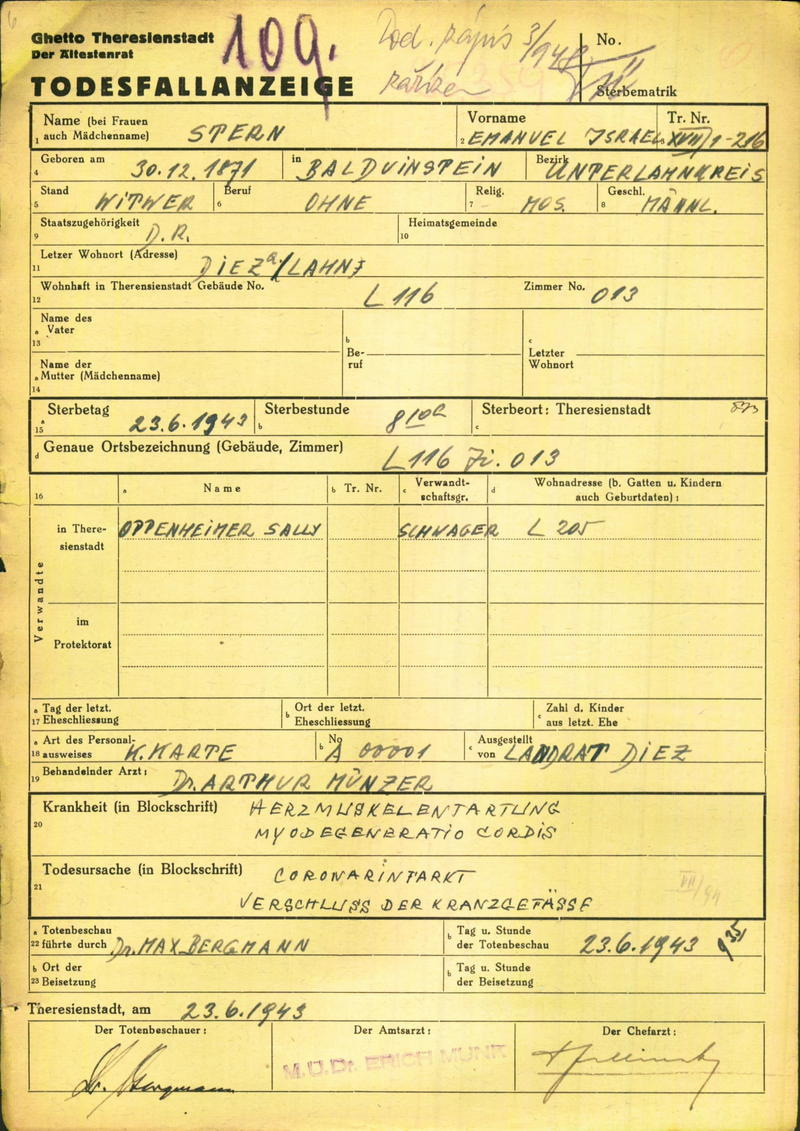 Ghetto Theresienstadt
Der Ältestenrat
109.
No.
Sterbematrik
TODESFALLANZEIGE
Name (bei Frauen auch Mädchenname) STERN
1
Vorname
2 EMANUEL ISRAEL
Tr. Nr.
3 XVIII/1-216
Geboren am 30.12.1871
4
in BALDUINSTEIN
Bezirk UNTERLAHNKREIS
Stand WITWER
5
Beruf OHNE
6
Relig. MOS.
7
Geschl. MÄNNL.
8
Staatszugehörigkeit D.R.
9
Heimatsgemeinde
10
Letzer Wohnort (Adresse) DIEZ a/LAHN
11
Wohnhaft in Theresienstadt Gebäude No. L 116
12
Zimmer No. 013
Name des
a Vater
13
b
Be-
ruf
c
Letzter
Wohnort
Name der
a Mutter (Mädchenname)
14
Sterbetag 23.6.1943
a
15
Sterbestunde
b
Sterbeort: Theresienstadt
c
d Genaue Ortsbezeichnung (Gebäude, Zimmer) L 116 Zi. 013
16
a Name
b Tr. Nr.
c Verwandt-
schaftsgr.
d Wohnadresse (b. Gatten u. Kindern
auch Geburtdaten):
Verwandte
in There-
sienstadt
OPPENHEIMER SALLY SCHWAGER L 205
im
Protektorat
a Tag der letzt.
17 Eheschliessung
b Ort der letzt.
Eheschliessung
c Zahl d. Kinder
aus letzt. Ehe
a Art des Personal-
18 ausweises K.KARTE
b No A 00001
c Ausgestellt
von LANDRAT DIEZ
19 Behandelnder Arzt: Dr. ARTHUR MÜNZER
Krankheit (in Blockschrift) HERZMUSKELENTARTUNG
20
MYODEGENERATIO CORDIS
Todesursache (in Blockschrift) CORONARINFARKT
21
VERSCHLUSS DER KRANZGEFÄSSE
a Totenbeschau
22 führte durch Dr. MAX BERGMANN
b Tag u. Stunde
der Totenbeschau 23.6.1943
b Ort der
23 Beisetzung
b Tag u. Stunde
der Beisetzung
Theresienstadt, am 23.6.1943
Der Totenbeschauer:
Dr. Bergmann
Der Amtsarzt:
M.U.Dr. ERICH MUNK
Der Chefarzt: